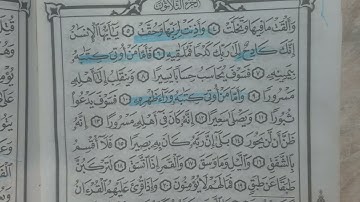 الجزء الثلاثون
وَأَلْقَتْ مَا فِيهَا وَتَخَلَّتْ ٤ وَأَذِنَتْ لِرَبِّهَا وَحُقَّتْ ٥ يَٰٓأَيُّهَا ٱلْإِنسَٰنُ
إِنَّكَ كَادِحٌ إِلَىٰ رَبِّكَ كَدْحًا فَمُلَٰقِيهِ ٦ فَأَمَّا مَنْ أُوتِىَ كِتَٰبَهُۥ
بِيَمِينِهِۦ ٧ فَسَوْفَ يُحَاسَبُ حِسَابًا يَسِيرًا ٨ وَيَنقَلِبُ إِلَىٰٓ أَهْلِهِۦ
مَسْرُورًا ٩ وَأَمَّا مَنْ أُوتِىَ كِتَٰبَهُۥ وَرَآءَ ظَهْرِهِۦ ١٠ فَسَوْفَ يَدْعُوا۟
ثُبُورًا ١١ وَيَصْلَىٰ سَعِيرًا ١٢ إِنَّهُۥ كَانَ فِىٓ أَهْلِهِۦ مَسْرُورًا ١٣ إِنَّهُۥ
ظَنَّ أَن لَّن يَحُورَ ١٤ بَلَىٰٓ إِنَّ رَبَّهُۥ كَانَ بِهِۦ بَصِيرًا ١٥ فَلَآ أُقْسِمُ
بِٱلشَّفَقِ ١٦ وَٱلَّيْلِ وَمَا وَسَقَ ١٧ وَٱلْقَمَرِ إِذَا ٱتَّسَقَ ١٨ لَتَرْكَبُنَّ
طَبَقًا عَن طَبَقٍ ١٩ فَمَا لَهُمْ لَا يُؤْمِنُونَ ٢٠ وَإِذَا قُرِئَ عَلَيْهِمُ ٱلْقُرْءَانُ